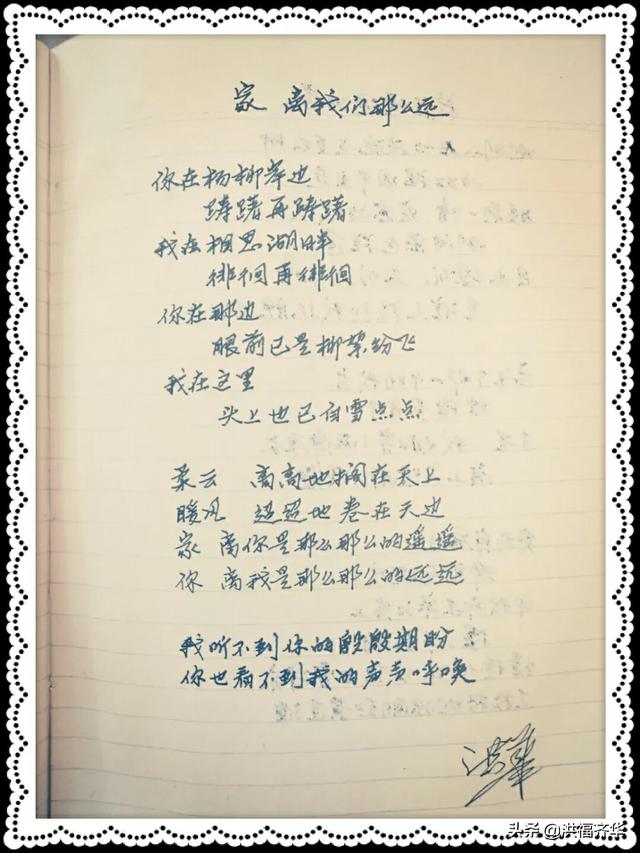 家 离我们那么远
你在杨柳岸边
踌躇再踌躇
我在相思湖畔
徘徊再徘徊
你在那边
眼前已是柳絮纷飞
我在这里
头上也已白雪点点
柔云 高高地搁在天上
暖风 迢迢地卷在天边
家 离你是那么那么的遥遥
你 离我是那么那么的远远
我听不到你的殷殷期盼
你也看不到我的声声呼唤
洪华
头条 @洪福齐华